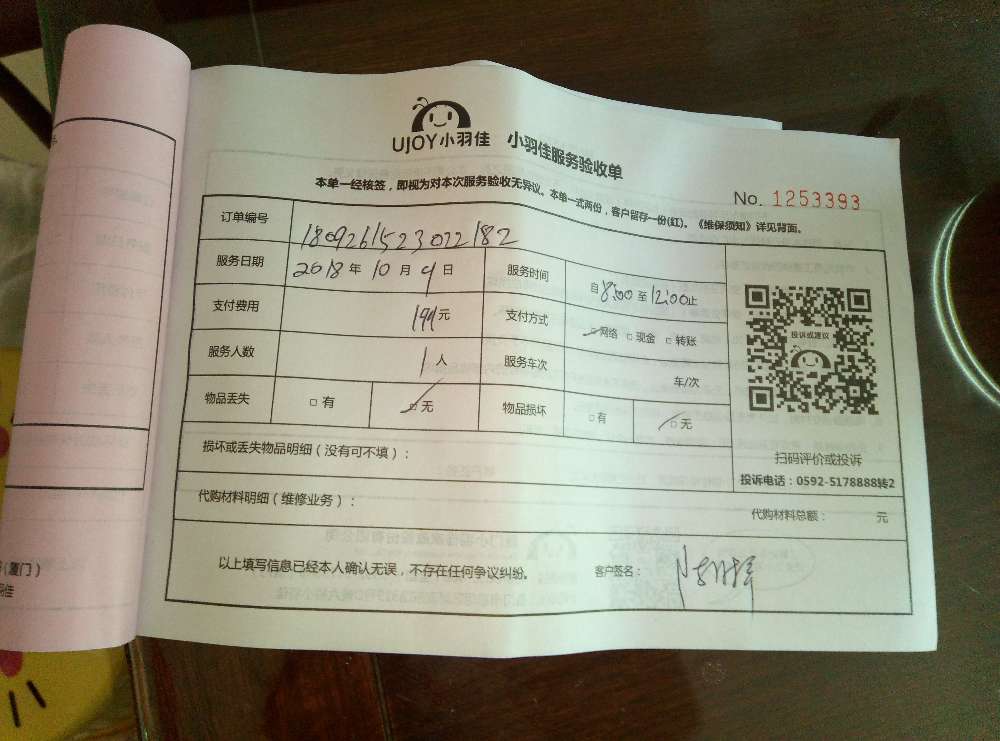 UJOY小羽佳 小羽佳服务验收单
本单一经核签，即视为对本次服务验收无异议。本单一式两份，客户留存一份(红)。《维保须知》详见背面。
No. 1253393
订单编号 180926152302218​2
服务日期 2018年10月9日 服务时间 自8:00至12:00止
支付费用 199元 支付方式 □网络 □现金 □转账
服务人数 1人 服务车次 车/次
物品丢失 □有 □无 物品损坏 □有 □无
投诉或建议
扫码评价或投诉
投诉电话：0592-5178888转2
损坏或丢失物品明细（没有可不填）：
代购材料明细（维修业务）： 代购材料总额： 元
以上填写信息已经本人确认无误，不存在任何争议纠纷。 客户签名：
(厦门)